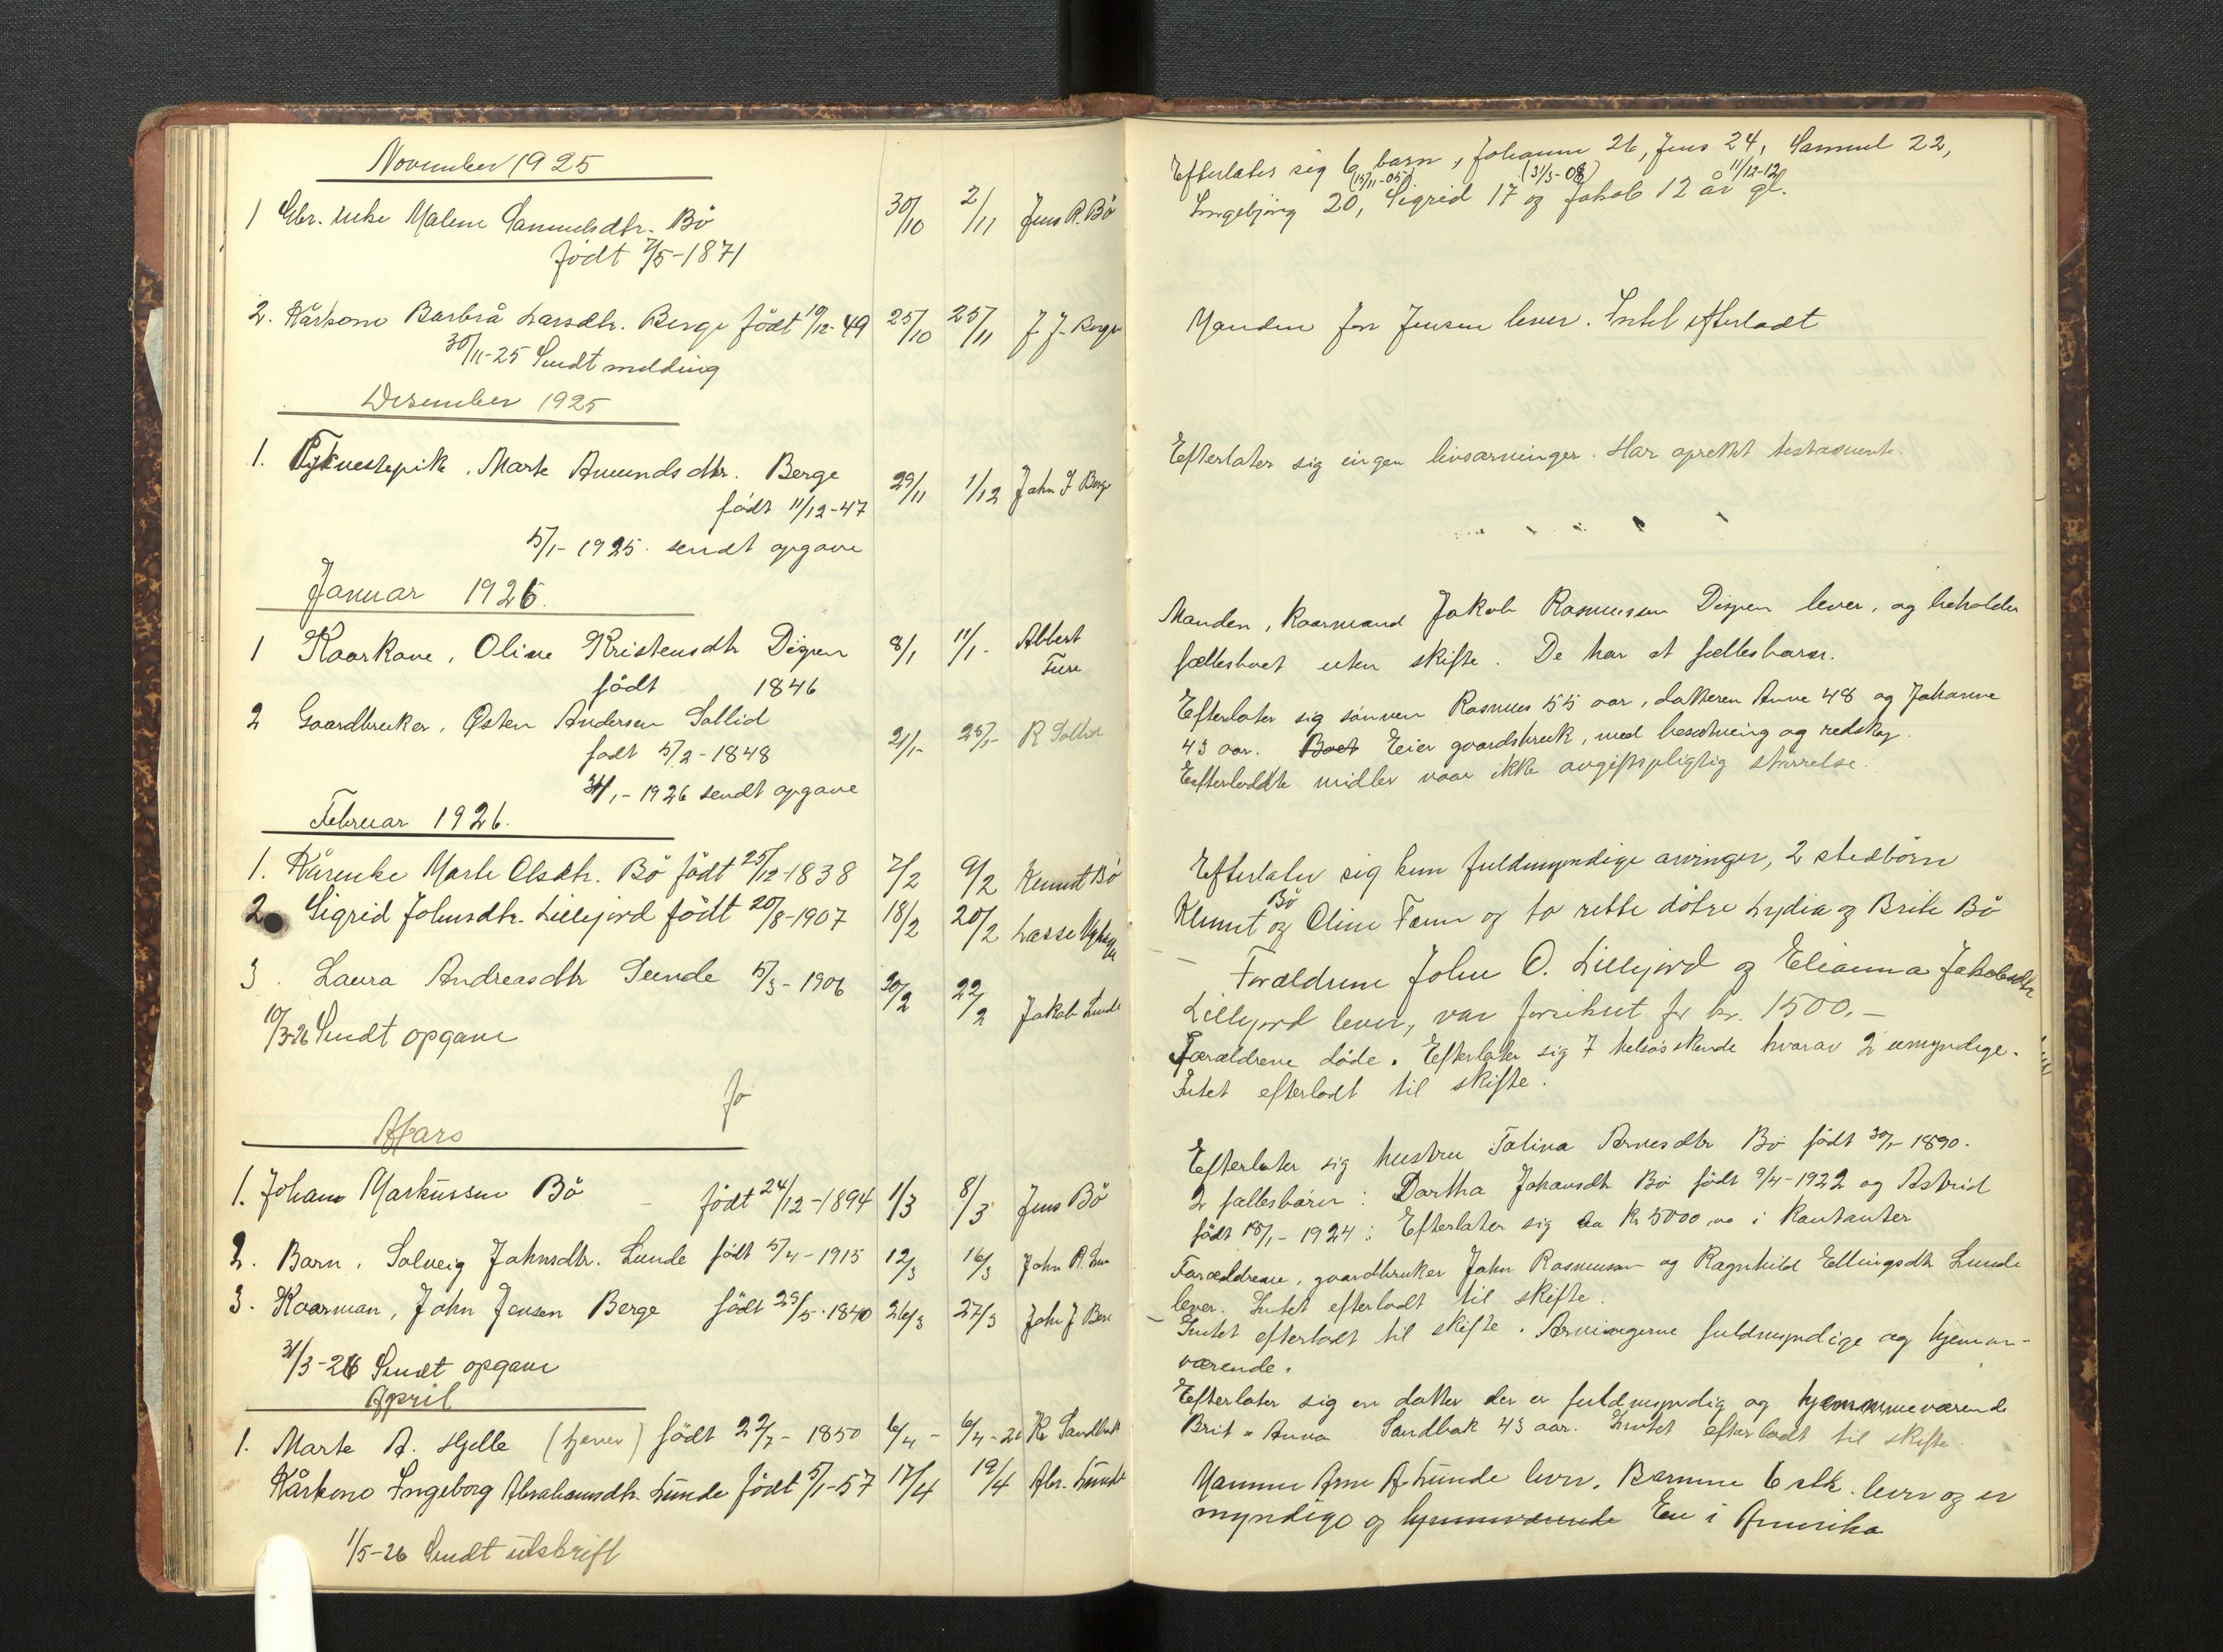 November 1925
1 Gbr. enke Malene Samuelsdtr. Bö 30/10 2/11 Jens R. Bö
födt 7/5-1871
2. Kårkone Barbrå Larsdtr. Berge födt 19/12-49 25/10 25/11 J. J. Berge
30/11-25 Sendt melding
Desember 1925
1. Marte Amundsdtr. Berge 29/11 1/12 John J Berge
födt 11/12-47
5/1-1925. sendt opgave
Januar 1926.
1 Kaarkone, Oline Kristensdtr Dispen 8/1 11/1- Albert
Ture
födt 1846
2 Gaardbruker, Østen Andersen Sollid 21/1- 25/1- R Sollid
født 5/2-1848
31/1-1926 sendt opgave
Februar 1926.
1. Kårenke Marte Olsdtr. Bö födt 25/12-1838 7/2 9/2 Klemet Bö
2 Sigrid Johnsdtr. Lillejord födt 20/8-1907 18/2 20/2 Lasse
3. Laura Andreasdtr Lunde 5/3-1906 20/2 22/2 Jakob Lunde
10/3-26 Sendt opgave
Jo
Mars
1. Johan Markussen Bö - födt 24/12-1894 1/3 8/3 Jens Bö
2. Barn, Solveig Johnsdtr. Lunde födt 5/4-1915 12/3 16/3 John R. Lun
3. Kaarman, John Jensen Berge födt 29/5.1840 26/3 27/3 John J Ber
31/3-26 Sendt opgave
April
1. Marte A. Hjelle födt 22/7-1850 6/4- 6/4-26 K. Sandbak
Kårkone Ingeborg Abrahamsdtr. Lunde födt 5/1-57 17/4 19/4 Abr. Lunde
1/5-26 Sendt utskrift
Efterlater sig 6 barn, Johanne 26, Jens 24, Samuel 22,
(15/11-05) (31/3-08) 11/12-12
Ingebjörg 20, Sigrid 17 og Jakob 12 år gl.
Manden Jon Jensen lever. Intet efterladt
Efterlater sig ingen livsarvinger. Har oprettet testamente.
Manden, kaarmand Jakob Rasmussen Dispen lever, og beholder
fællesboet uten skifte. De har et fællesbarn.
Efterlater sig sönnen Rasmus 55 aar, datteren Anne 48 og Johanne
43 aar. Boet Eier gaardsbruk, med besetning og redskap.
Eefterladte midler naar ikke avgiftspligtig störrelse.
Efterlater sig kun fuldmyndige arvinger, 2 stedbörn
Bö
Klemet og Oline Ture og to rette dötre Lydia og Brite Bö
- Forældrene John O. Lillejord og Elianna Jakobsdtr
Lillejord lever, var forsikret for kr. 1500.-
Forældrene döde. Efterlater sig 7 helsöskende hvorav 2 umyndige.
Intet efterladt til skifte.
Efterlater sig hustru Talina Arnesdtr Bö födt 30/1-1890.
2 fællesbörn: Dartha Johansdtr Bö födt 9/4-1922 og Astrid
födt 18/1-1924: Efterlater sig ca kr 5000,00 i kontanter
Forældrene, gaardbruker John Rasmussen og Ragnhild Ellingsdtr Lunde
lever. Intet efterladt til skifte.
- Intet efterladt til skifte. Arvingerne fuldmyndige og hjemme-
værende.
Efterlater sig en datter der er fuldmyndig og hjemmeværende
Brit-Anna Sandbak 43 aar. Intet efterladt til skifte.
Mannen Arne A. Lunde lever. Barnene 6 stk. lever og er
myndige og hjemmeværende En i Amerika